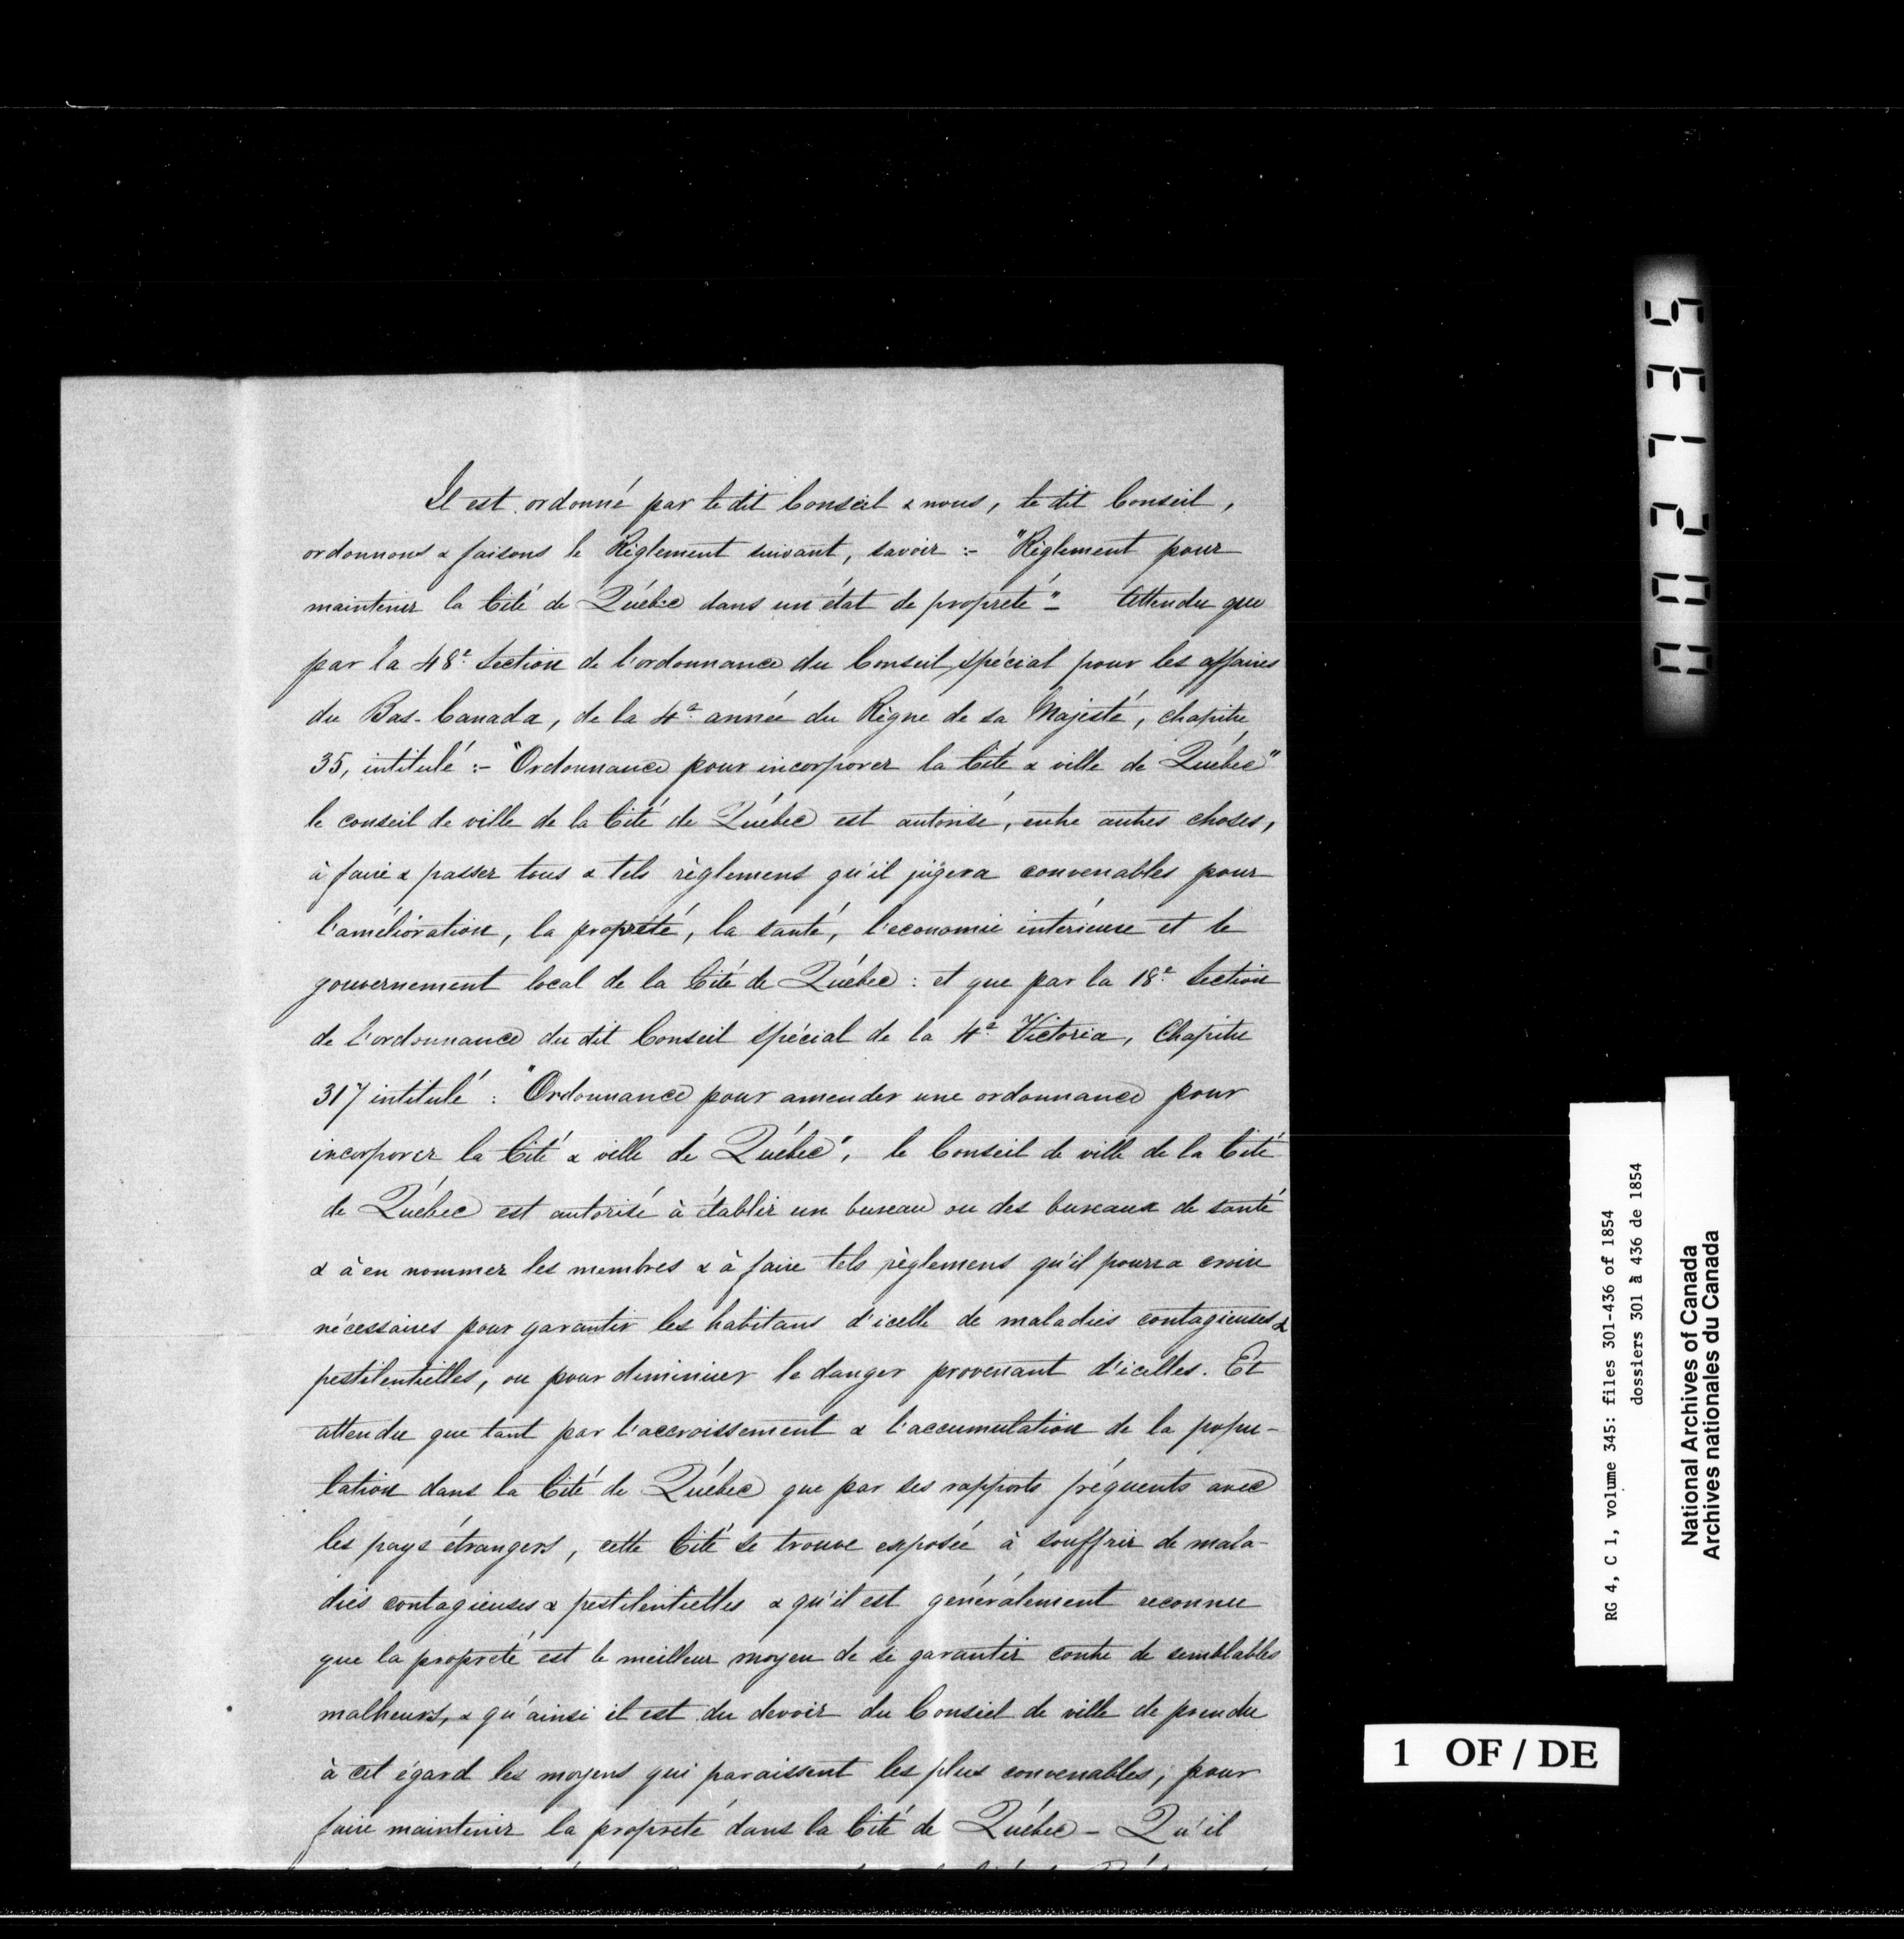 Il est ordonné par le dit Conseil & nous, le dit Conseil,
ordonnons & faisons le Règlement suivant, savoir :- "Règlement pour
maintenir la Cité de Québec dans un état de propreté"- Attendu que
par la 48e section de l'ordonnance du Conseil spécial pour les affaires
du Bas-Canada, de la 4e année du Règne de sa Majesté, chapitre
35, intitulé :- "Ordonnance pour incorporer la Cité & ville de Québec"
le conseil de ville de la Cité de Québec est autorisé, entre autres choses,
à faire & passer tous & tels règlemens qu'il jugera convenables pour
l'amélioration, la propreté, la santé, l'economie intérieure et le
gouvernement local de la Cité de Québec : et que par la 18e section
de l'ordonnance du dit Conseil spécial de la 4e Victoria, Chapitre
31 intitulé : "Ordonnance pour amender une ordonnance pour
incorporer la Cité & ville de Québec", le Conseil de ville de la Cité
de Québec est autorisé à établir un bureau ou des bureaux de santé
& à en nommer les membres & à faire tels règlemens qu'il pourra croire
nécessaires pour garantir les habitans d'icelle de maladies contagieuses &
pestilentielles, ou pour diminuer le danger provenant d'icelles. Et
attendu que tant par l'accroissement & l'accumulation de la popu-
lation dans la Cité de Québec que par ses rapports fréquents avec
les pays étrangers, cette Cité se trouve exposée à souffrir de mala-
dies contagieuses & pestilentielles & qu'il est généralement reconnu
que la propreté est le meilleur moyen de se garantir contre de semblables
malheurs, & qu'ainsi il est du devoir du Conseil de ville de prendre
à cet égard les moyens qui paraissent les plus convenables, pour
faire maintenir la propreté dans la Cité de Québec - Qu'il
002135
RG 4, C 1, volume 345: files 301-436 of 1854
dossiers 301 à 436 de 1854
National Archives of Canada
Archives nationales du Canada
1 OF / DE